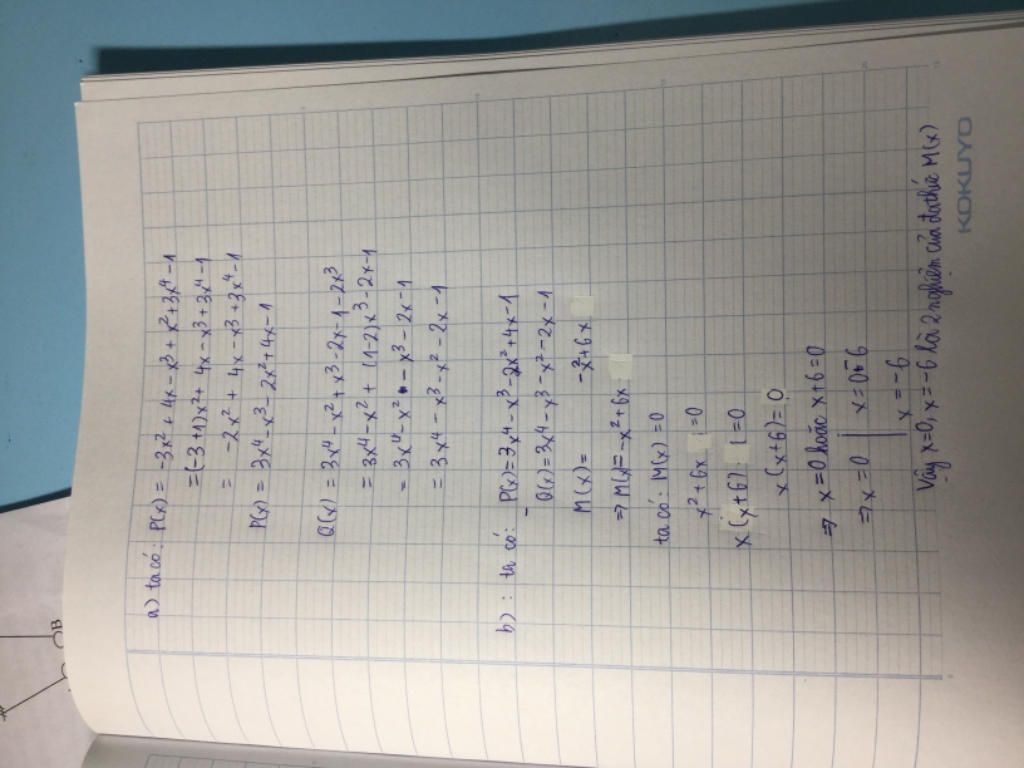 a) ta có: P(x) = -3x² + 4x - x³ + x² + 3x⁴ - 1
= (-3+1)x² + 4x - x³ + 3x⁴ - 1
= -2x² + 4x - x³ + 3x⁴ - 1
P(x) = 3x⁴ - x³ - 2x² + 4x - 1
Q(x) = 3x⁴ - x² + x³ - 2x - 1 - 2x³
= 3x⁴ - x² + (1-2)x³ - 2x - 1
= 3x⁴ - x² - x³ - 2x - 1
= 3x⁴ - x³ - x² - 2x - 1
b) : ta có: P(x) = 3x⁴ - x³ - 2x² + 4x - 1
- Q(x) = 3x⁴ - x³ - x² - 2x - 1
M(x) = -x² + 6x
=> M(x) = -x² + 6x
ta có: M(x) = 0
x² + 6x = 0
x(x+6) = 0
x(x+6) = 0
=> x = 0 hoặc x + 6 = 0
=> x = 0 | x = 0 - 6
x = -6
Vậy x=0, x=-6 là 2 nghiệm của đa thức M(x)
KOKUYO
B